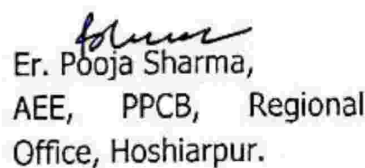 Er. Pooja Sharma,
AEE, PPCB, Regional
Office, Hoshiarpur.